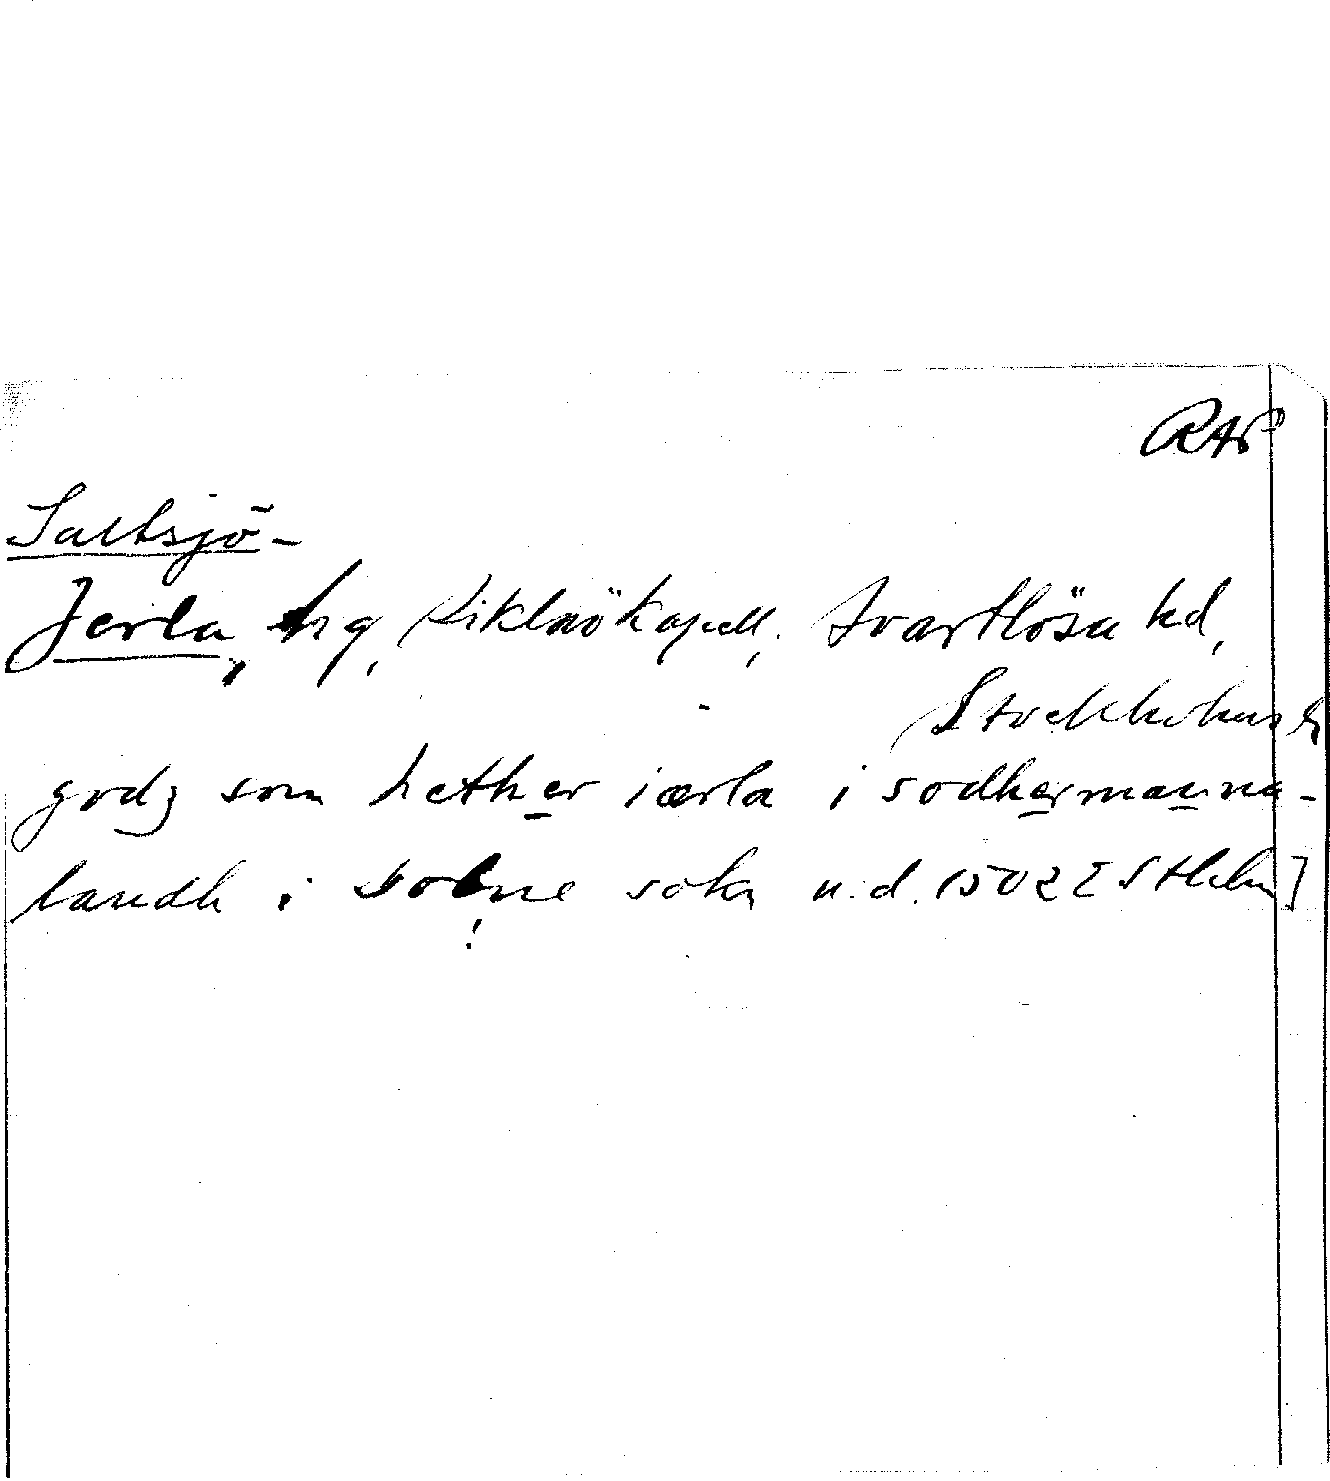 RAP
Saltsjö-
Jerla, hg, Sicklaö kapell, Svartlösa hd,
Stockholms l
godz som hether iærla i sodhermanna-
landh i solne sokn u.d. 1502 [Sthlm]
!